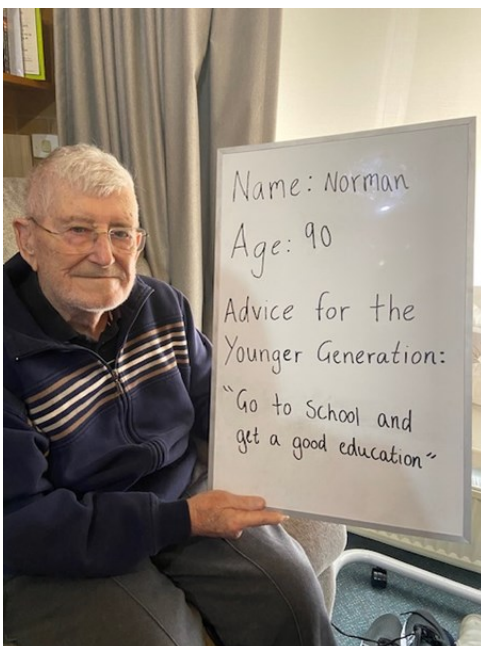 Name: Norman
Age: 90
Advice for the
Younger Generation:
"Go to School and
get a good education"